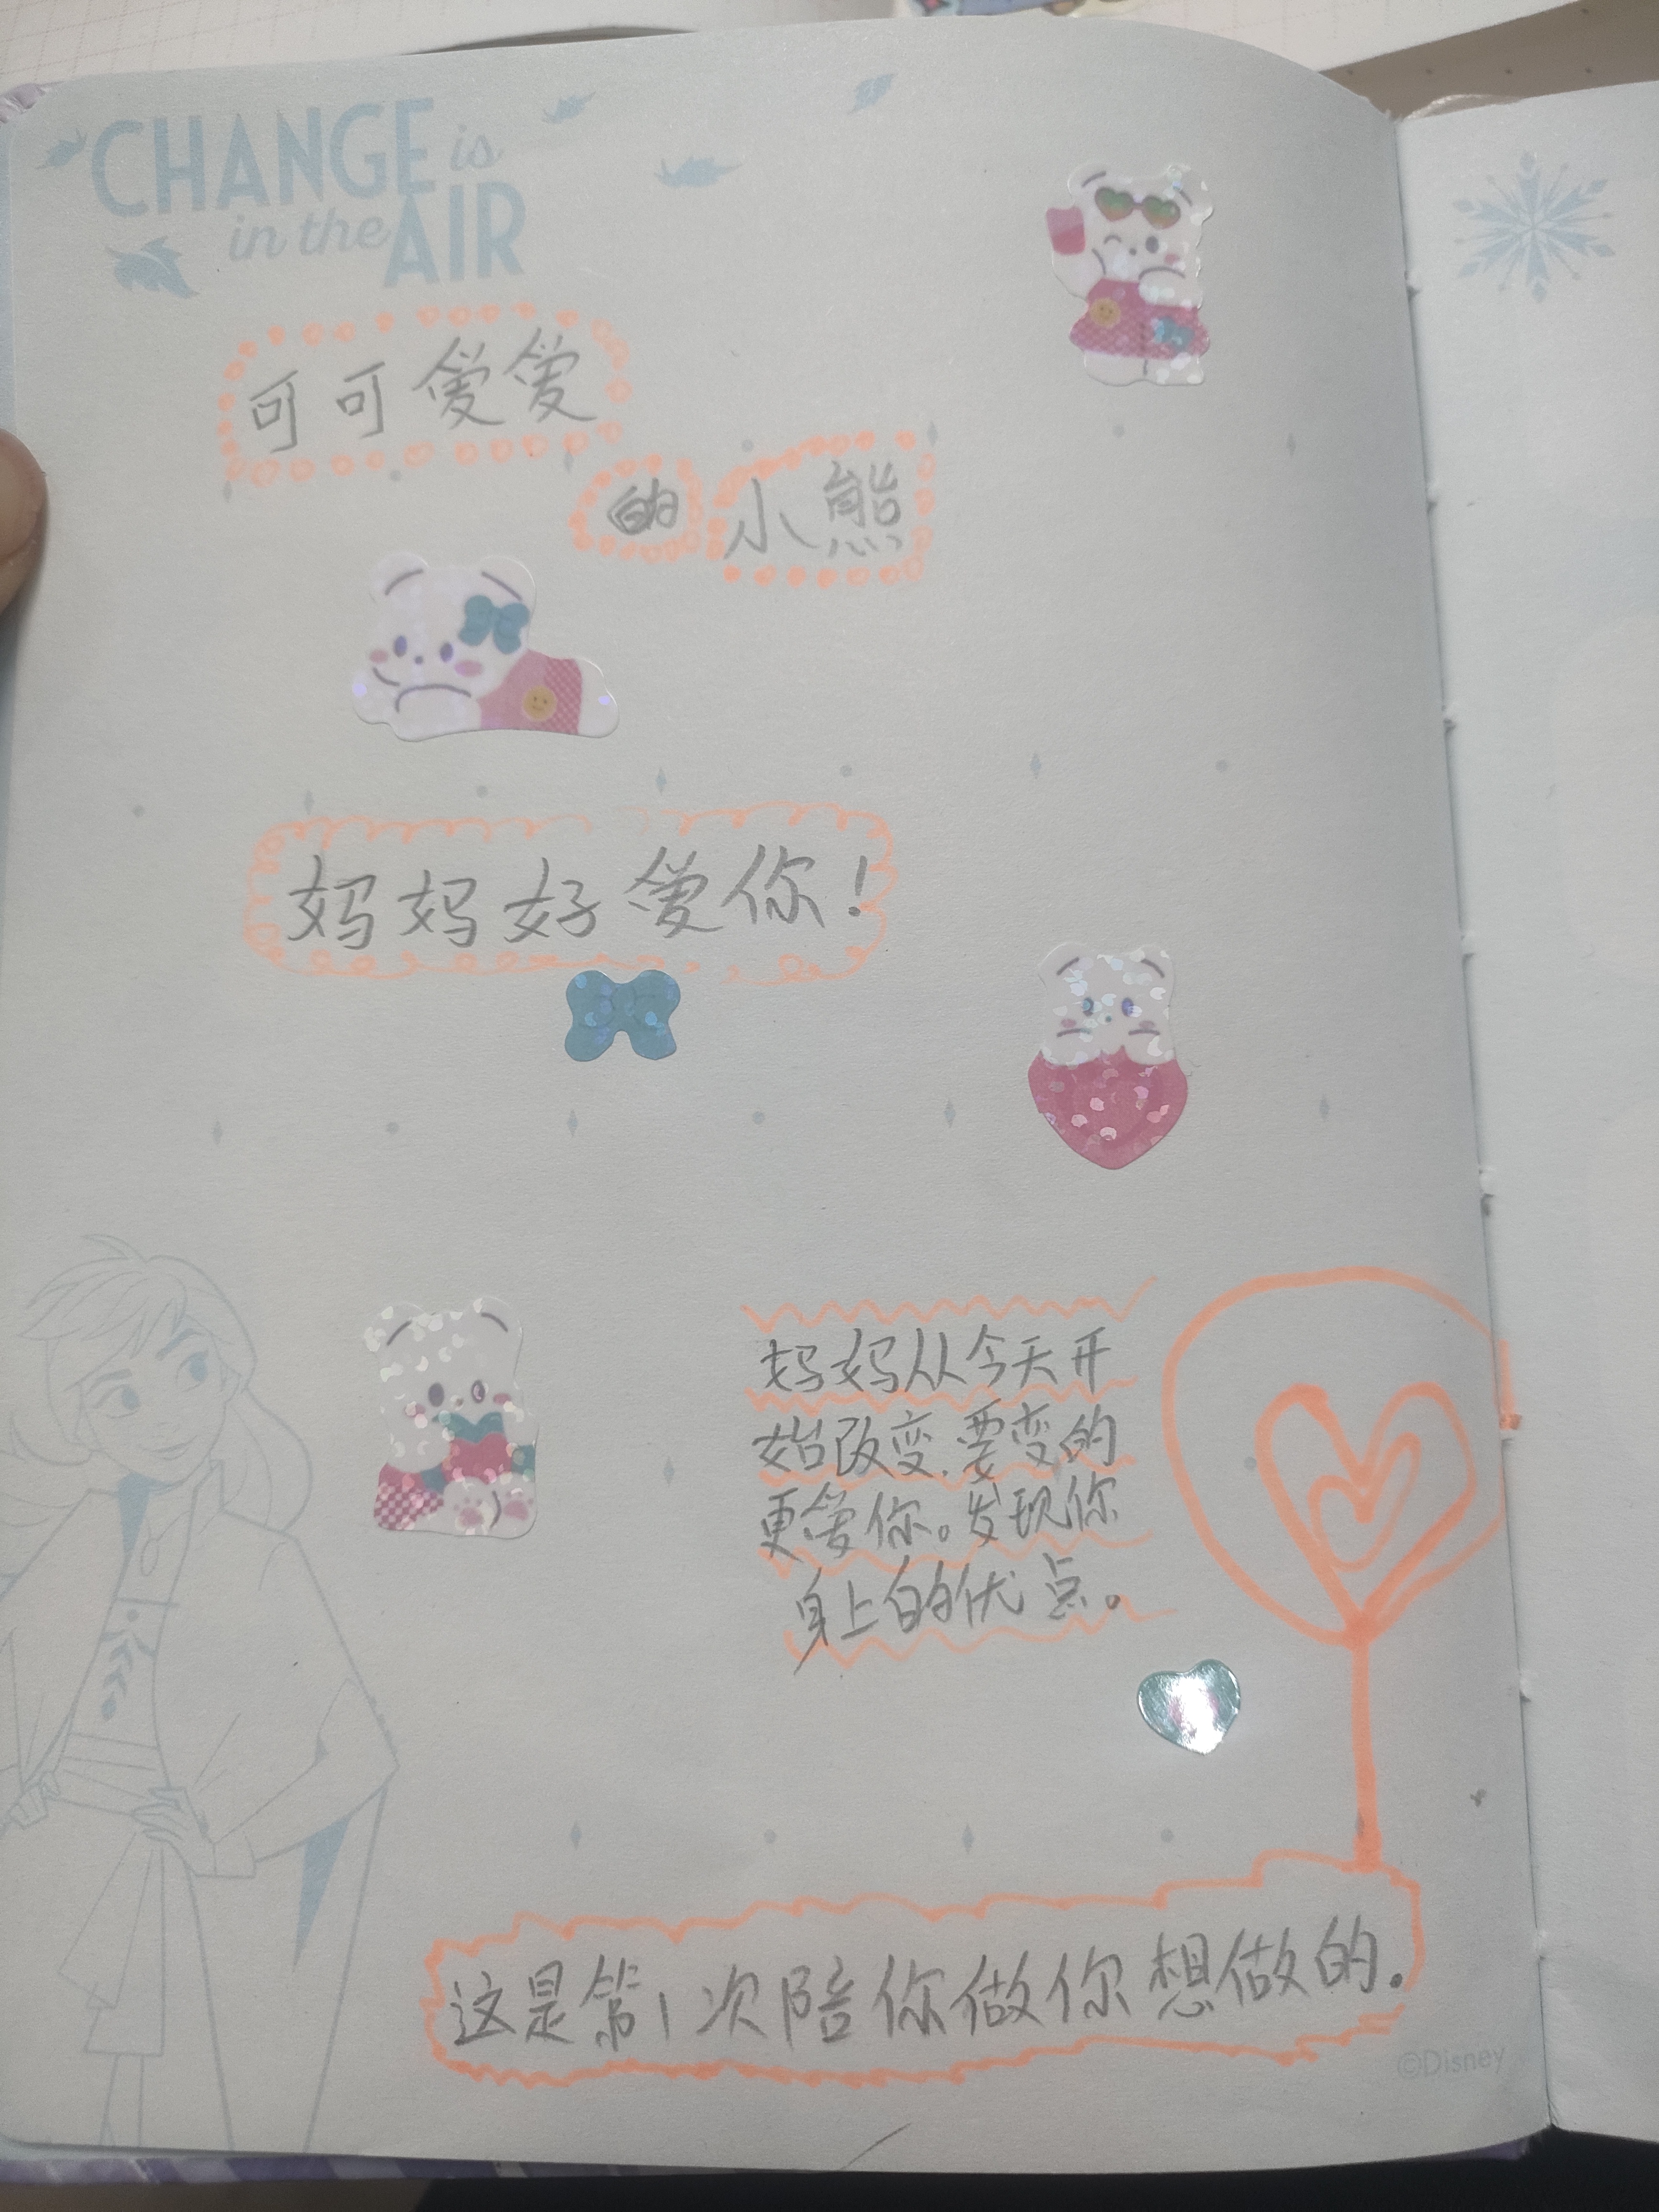 CHANGE is
in the AIR
可可爱爱
的小熊
妈妈好爱你！
妈妈从今天开
始改变.要变的
更爱你。发现你
身上的优点。
这是第1次陪你做你想做的.
©Disney